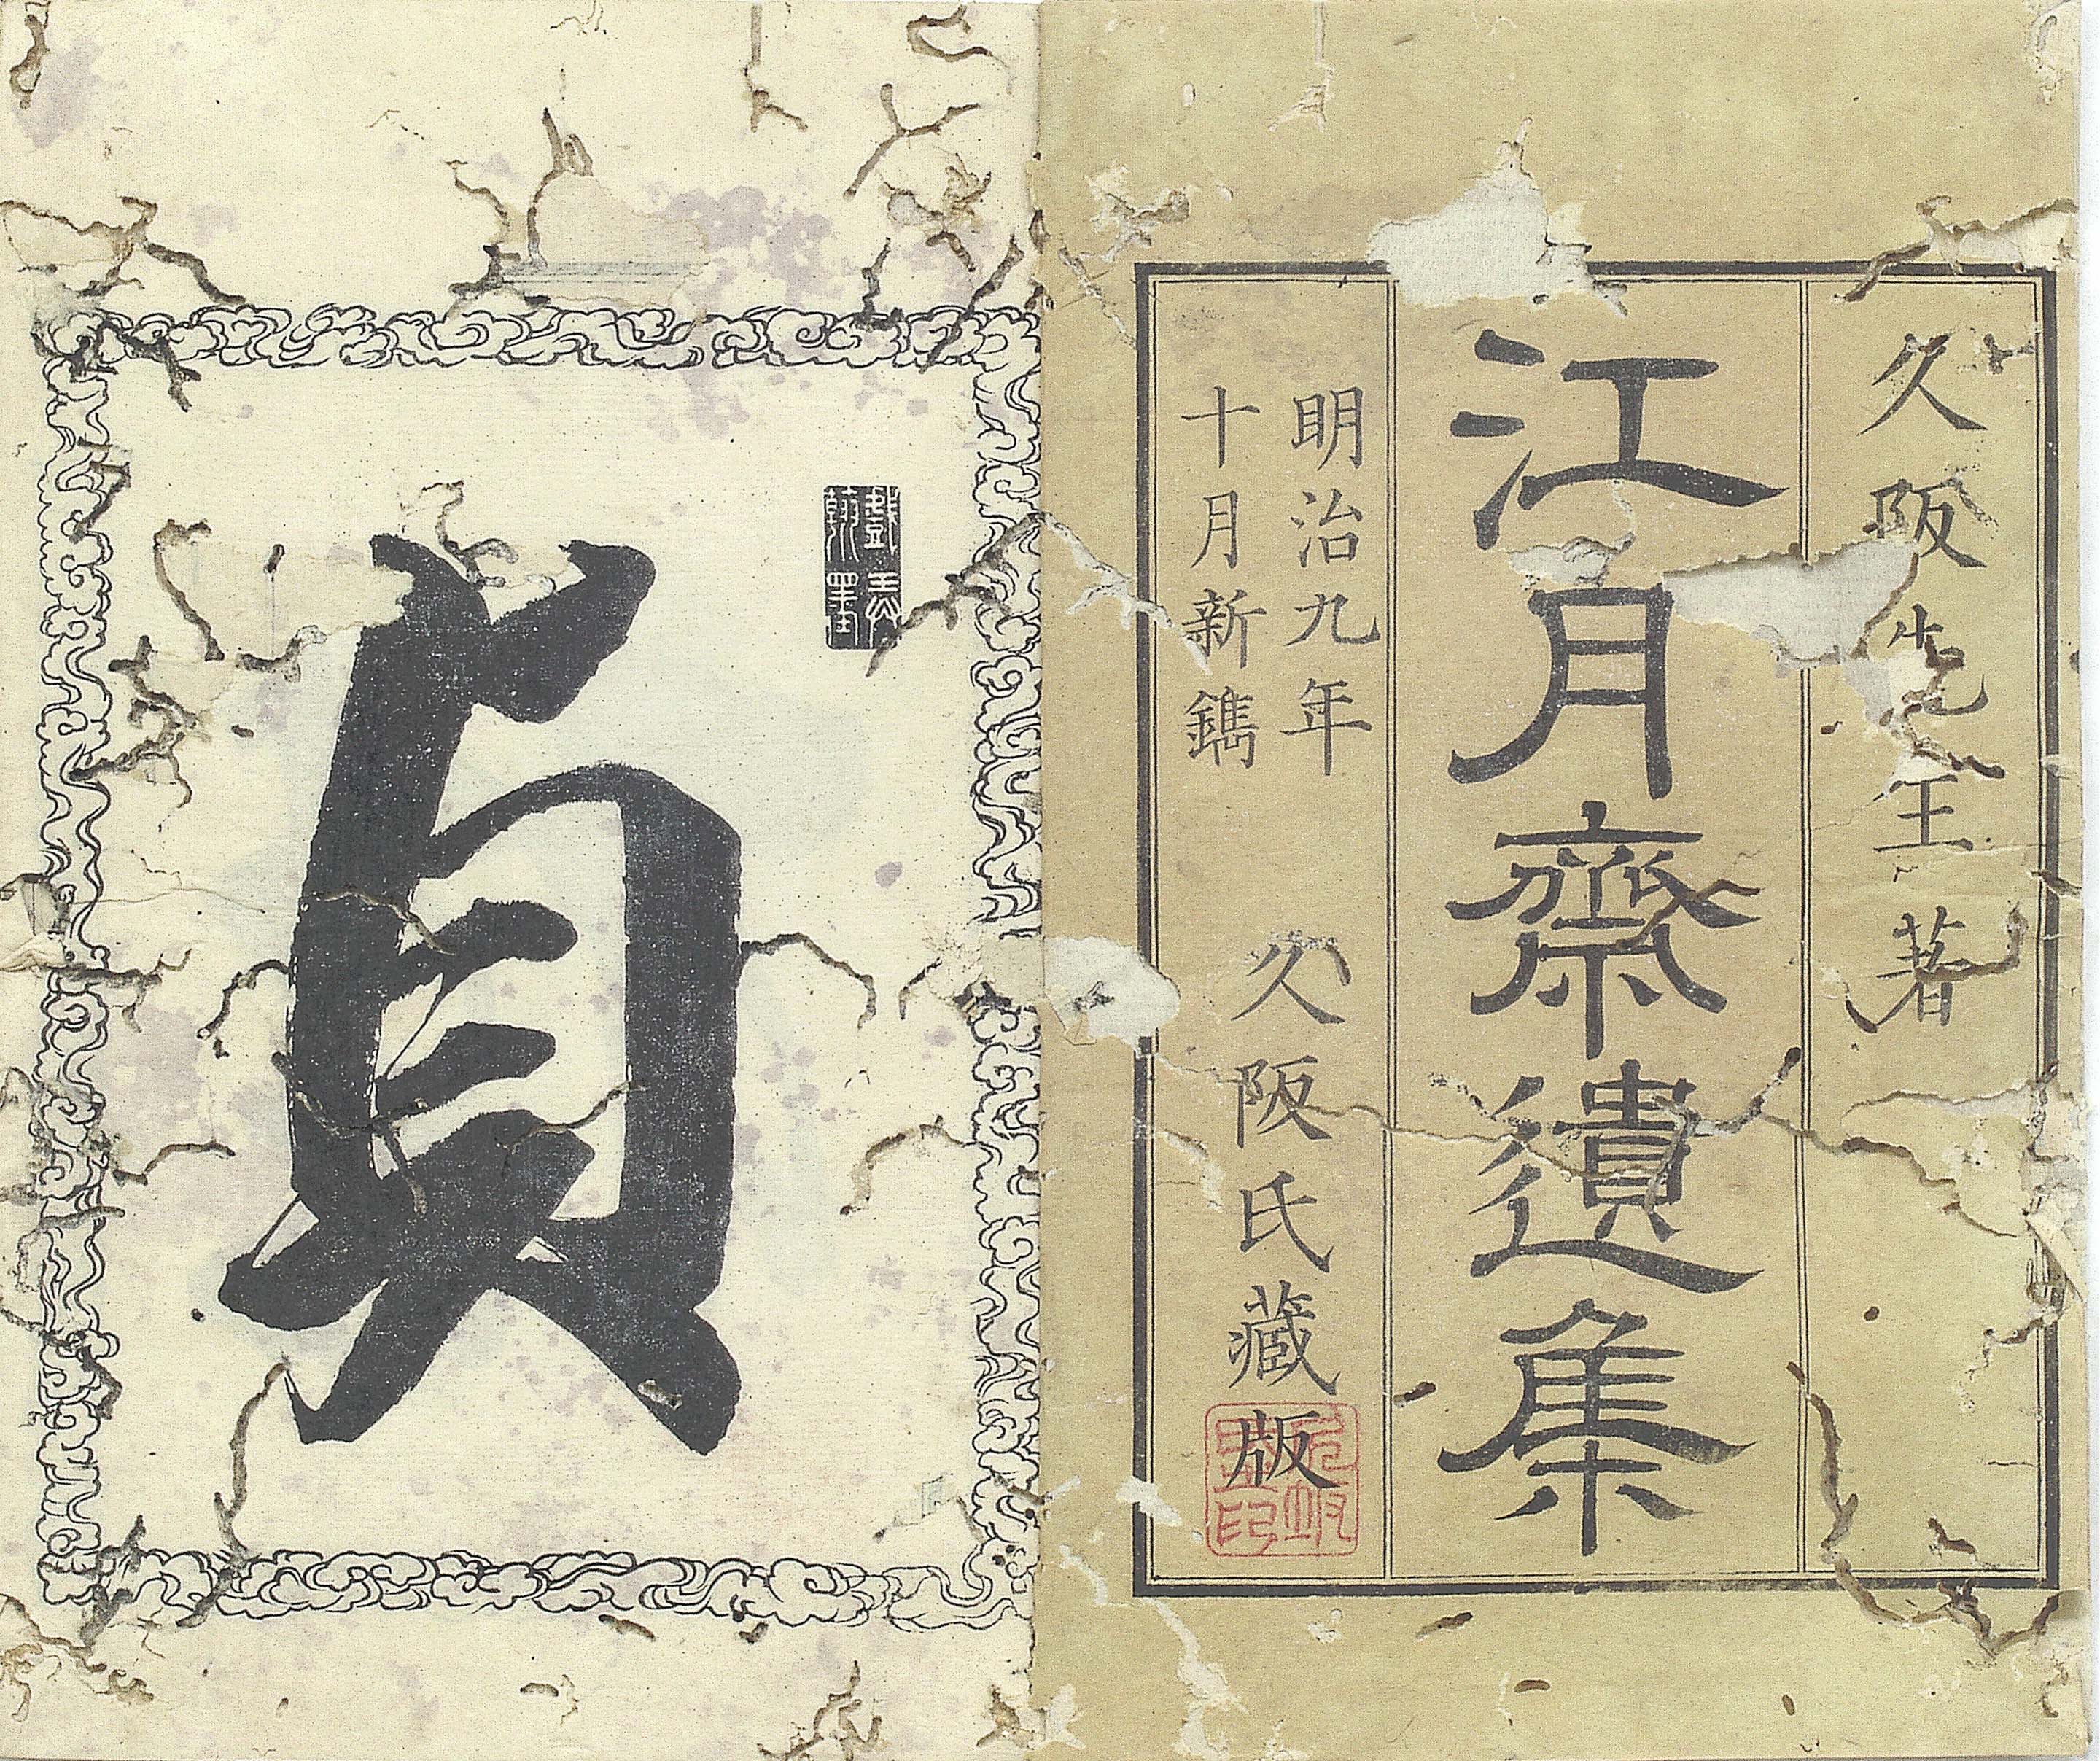 久阪先生著
江月齋遺集
明治九年
十月新鐫
久阪氏藏版
翰墨
貞